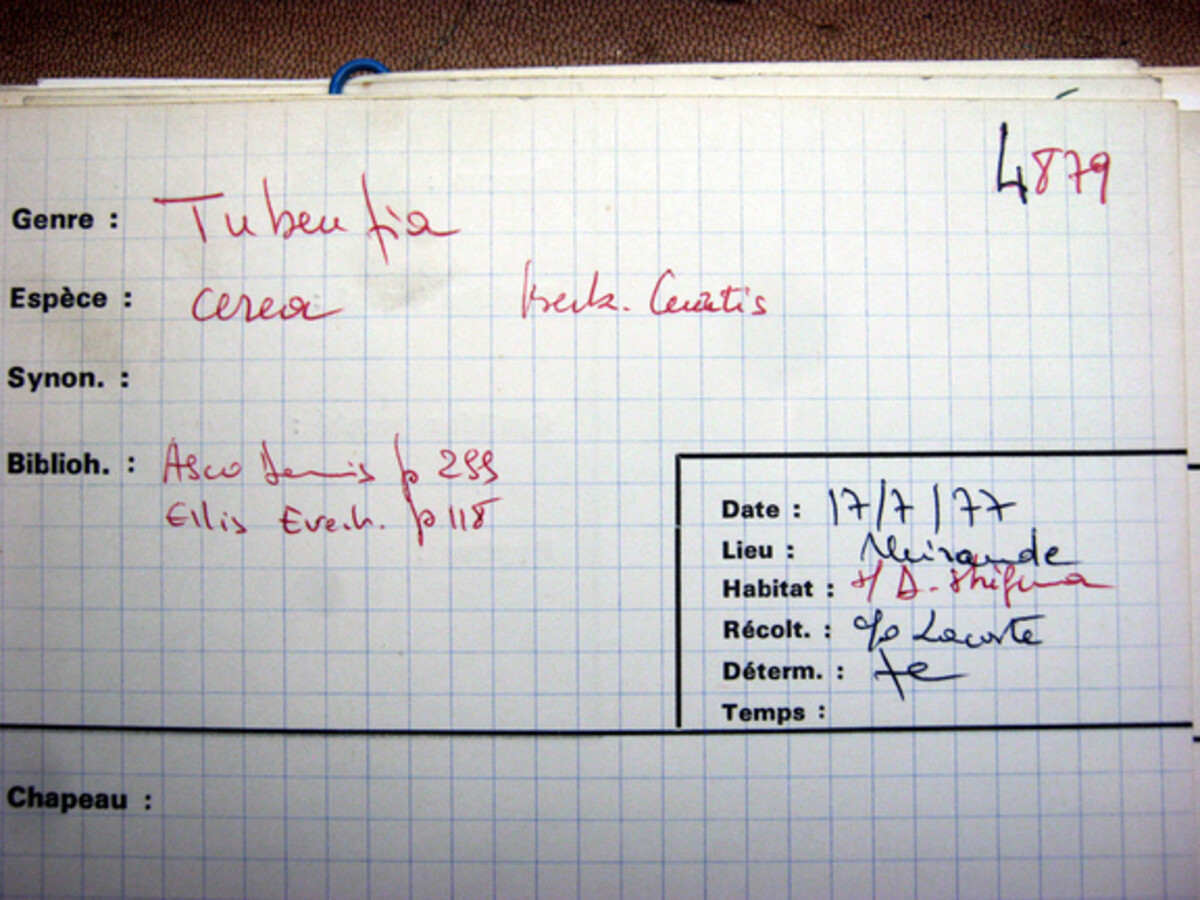 4879
Genre : Tubeufia
Espèce : cerea Berk. Curtis
Synon. :
Biblioh. : Asco Dennis p 299
Ellis Everh. p 118
Date : 17/7/77
Lieu : Mirande
Habitat : s/ D. stigma
Récolt. : Lacoste
Déterm. :
Temps :
Chapeau :